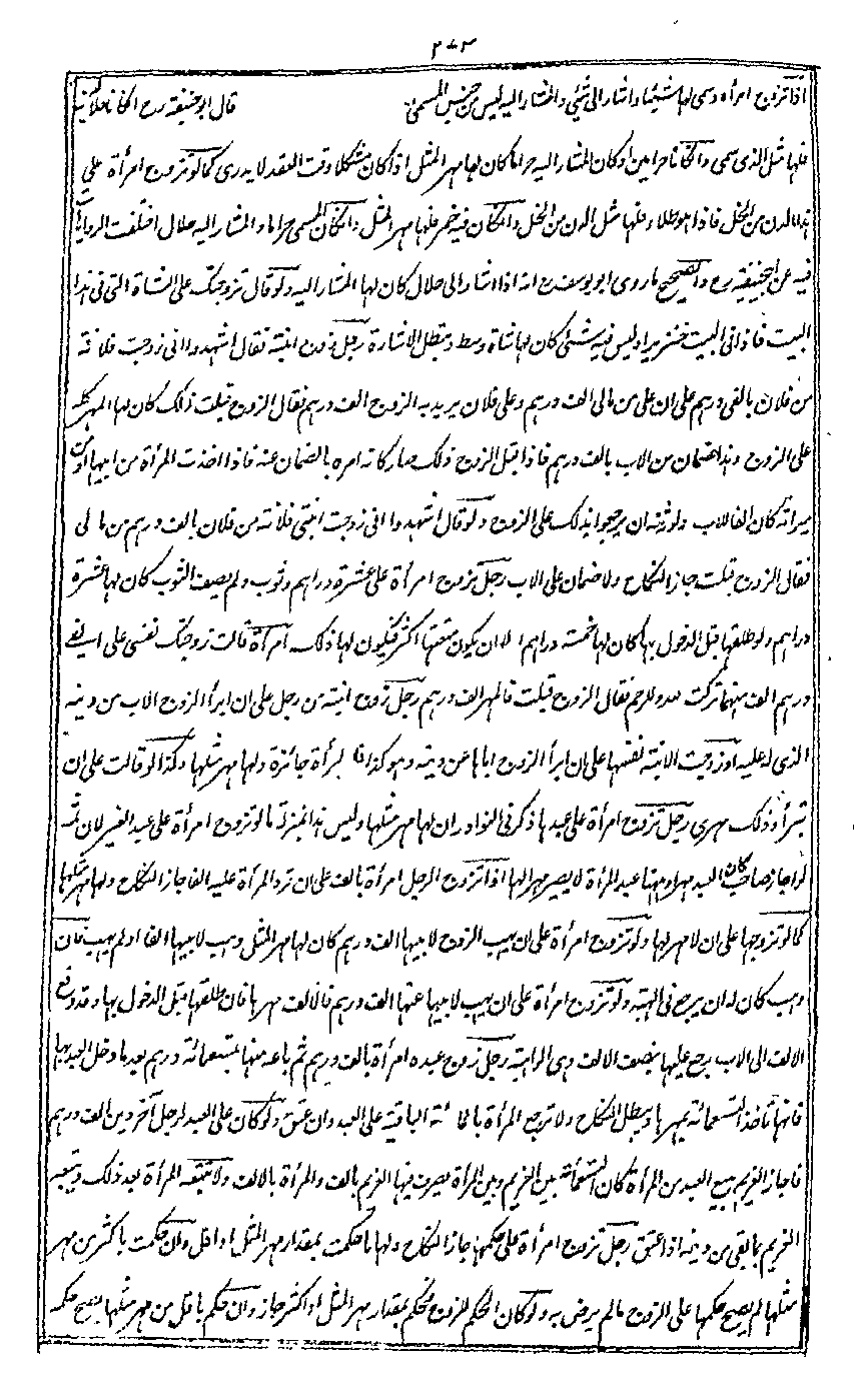 ٢٧٣
اذا تزوج امرأة وسمى لها شيئا واشار الى شئ والمشار اليه ليس من جنس المسمى قال ابو حنيفة رح ان كانا حلالين
فلها مثل الذى سمى وان كانا حرامين او كان المشار اليه حراما كان لها مهر المثل اذا كان مشكلا وقت العقد لا يدرى كما لو تزوج امرأة على
هذا الدن من الخل فاذا هو طلاء فلها مثل الدن من الخل وان كان فيه خمر فلها مهر المثل وان كان المسمى حراما والمشار اليه حلال اختلفت الروايات
فيه عن ابى حنيفة رح والصحيح ما روى ابو يوسف رح انه اذا اشار الى حلال كان لها المشار اليه ولو قال تزوجتك على الشاة التى فى هذا
البيت فاذا فى البيت خنزير او ليس فيه شئ كان لها شاة وسط وتبطل الاشارة رجل زوج ابنته فقال اشهدوا انى زوجت فلانة
من فلان بالفى درهم على ان على من مالى الف درهم وعلى فلان يريد به الزوج الف درهم فقال الزوج قبلت ذلك كان لها المهر كله
على الزوج وهذا ضمان من الاب بالف درهم فاذا قبل الزوج ذلك صار كانه امره بالضمان عنه فاذا اخذت المرأة من ابيها او من
ميراثه كان الف للاب ولورثته ان يرجعوا بذلك على الزوج ولو قال اشهدوا انى زوجت ابنتى فلانة من فلان بالف درهم من مالى
فقال الزوج قبلت جاز النكاح ولا ضمان على الاب رجل تزوج امرأة على عشرة دراهم وثوب ولم يصف الثوب كان لها عشرة
دراهم ولو طلقها قبل الدخول بها كان لها خمسة دراهم الا ان يكون متعتها اكثر فيكون لها ذلك امرأة قالت زوجتك نفسى على الفى
درهم الف منهما تركت لله وللرحم فقال الزوج قبلت فالمهر الف درهم رجل زوج ابنته من رجل على ان ابرأ الزوج الاب من دينه
الذى له عليه او زوجت الابنة نفسها على ان ابرأ الزوج اباها عن دينه وهو كذا فالبرأة جائزة ولها مهر مثلها وكذا لو قالت على ان
تبرأ وذلك مهرى رجل تزوج امرأة على عبدها ذكر فى النوادر ان لها مهر مثلها وليس هذا بمنزلة ما لو تزوج امرأة على عبد الغير لان ثمة
لو اجاز صاحب العبد كان العبد مهرا وههنا عبد المرأة لا يصير مهرا لها اذا تزوج الرجل امرأة بالف على ان ترد المرأة عليه الفا جاز النكاح ولها مهر مثلها
كما لو تزوجها على ان لا مهر لها ولو تزوج امرأة على ان يهب الزوج لابيها الف درهم كان لها مهر المثل وهب لابيها الفا او لم يهب فان
وهب كان له ان يرجع فى الهبة ولو تزوج امرأة على ان يهب لابيها عنها الف درهم فالالف مهرها فان طلقها قبل الدخول بها وقد دفع
الالف الى الاب يرجع عليها بنصف الالف وهى الواهبة رجل زوج عبده امرأة بالف درهم ثم باعه منها بتسعمائة درهم بعد ما دخل العبد بها
فانها تأخذ التسعمائة بمهرها ويبطل النكاح ولا ترجع المرأة بالمائة الباقية على العبد وان عتق ولو كان على العبد لرجل آخر دين الف درهم
فاجاز الغريم بيع العبد من المرأة كان التسعمائة بين الغريم وبين المرأة يضرب فيها الغريم بالف والمرأة بالالف ولا تتبعه المرأة بعد ذلك ويتبعه
الغريم بما بقى من دينه اذا عتق رجل تزوج امرأة على حكمها جاز النكاح ولها ما حكمت بمقدار مهر المثل او اقل وان حكمت باكثر من مهر
مثلها لم يصح حكمها على الزوج ما لم يرض به ولو كان الحكم للزوج فحكم بمقدار مهر المثل او اكثر جاز وان حكم باقل من مهر مثلها يصح حكمه